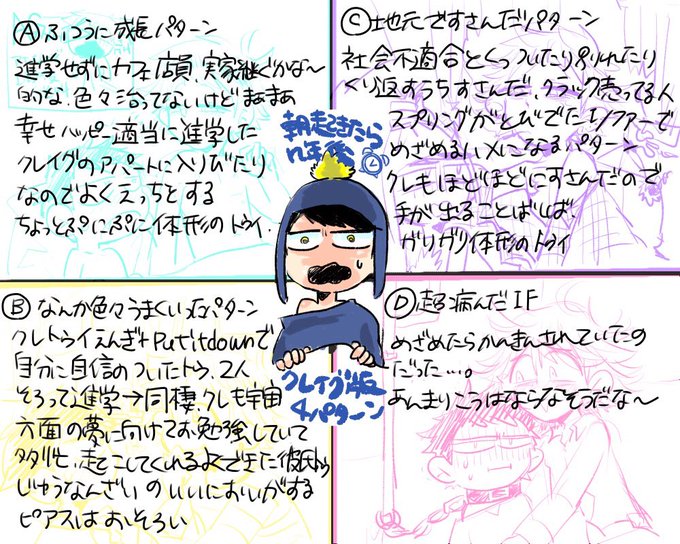 Ⓐ ふつうに成長パターン
進学せずにカフェ店員、実家継ぐかな〜
的な、色々治ってないけどまぁまぁ
幸せハッピー適当に進学した
クレイグのアパートに入りびたり
なのでよくえっちとする
ちょっとぷにぷに体形のトゥイ.
Ⓒ 地元ですさんだパターン
社会不適合とくっついたり別れたり
くり返すうちすさんだ、クラック売ってる人
スプリングがとびでたソファーで
めざめるハメになるパターン
クレもほどほどにすさんだので
手が出ることばしば、
ガリガリ体形のトゥイ
朝起きたら
n年後
クレイグ版
4パターン
Ⓑ なんか色々うまくいったパターン
クレトゥイえんぎ+Put it downで
自分に自信のついたトゥ、2人
そろって進学→同棲、クレも宇宙
方面の夢に向けてお勉強していて
多忙、起こしてくれるよくできた彼氏トゥ
じゅうなんざいのいいにおいがする
ピアスはおそろい
Ⓓ 超病んだIF
めざめたらかんきんされていたの
だった…。
あんまりこうはならなそうだな〜